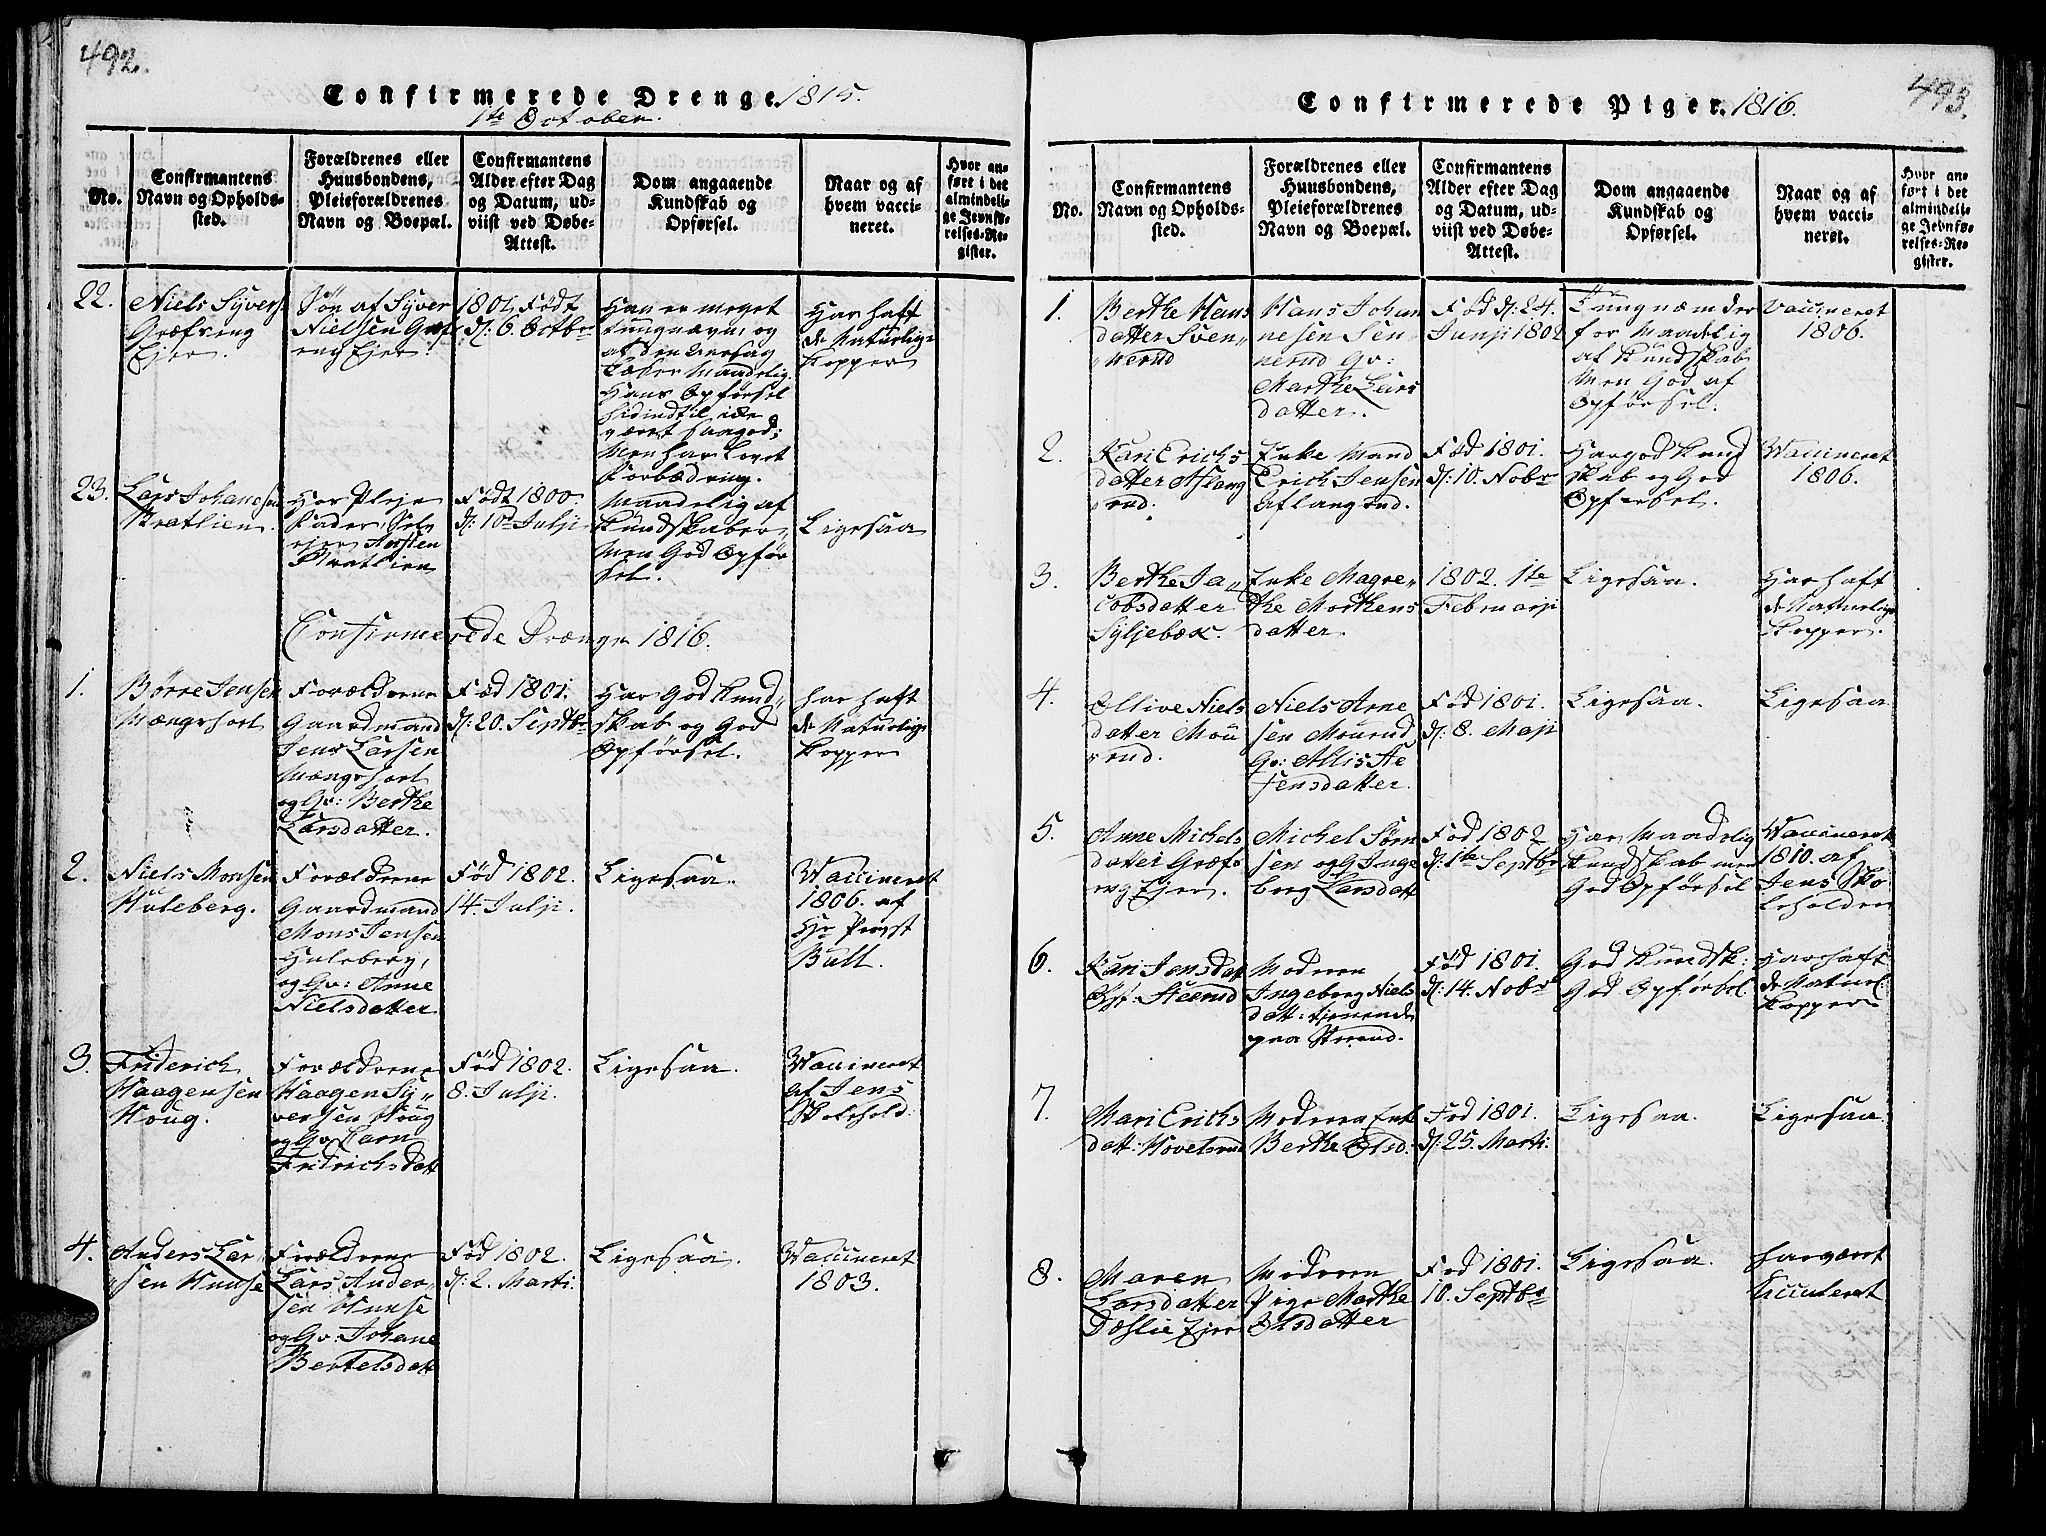 492.
Confirmerede Drenge 1815.
1te October.
No.
Confirmantens
Navn og Opholds-
sted.
Forældrenes eller
Huusbondens,
Pleieforældrenes
Navn og Boepæl.
Confirmantens
Alder efter Dag
og Datum, ud-
viist ved Døbe-
Attest.
Dom angaaende
Kundskab og
Opførsel.
Naar og af
hvem vacci-
neret.
Hvor an-
ført i det
almindeli-
ge Jevnfø-
relses-Re-
gister.
22.
Niels Syvers
Græfsring
Ejer.
Søn af Syver
Nielsen Græfs
reng Ejer.
1801 Født
d: 6. Octbr
Han er meget
tungnæm, og
af den Aarsag
læser Maadelig.
Hans Opførsel
hidindtil ikke
været saa god;
Men har lovet
Forbædring.
Har haft
de Naturlige
Kopper
23.
Lars Johanesen
Bratlien.
Har Pleje
Fader, Selv
ejer Austen
Bratlien
Født 1800
d: 10d Julji
Maadelig af
Kundskaber,
Men God Opfør
sel.
Ligesaa
Confirmerede Drænge 1816.
1.
Børre Jensen
Mængshoel
Forældrene
Gaardmand
Jens Larsen
Mængshoel
og Gv: Berthe
Larsdatter.
Fød 1801.
d: 20. Septbr
Har God Kund„
skab og God
Opførsel.
har haft
de Naturlige
Kopper
2.
Niels Monsen
Huleberg.
Forældrene
Gaardmand
Mons Jensen
Huleberg,
og Gv: Anne
Nielsdatter
Fød 1802.
14. Julji.
Ligesaa.
Waccineret
1806. af
Hr Provst
Bull.
3.
Friderich
Haagensen
Houg.
Forældrene
Haagen Sy„
versen Houg
og Gv Karn
Fridrichsdatt
Fød 1802.
8. Julji.
Ligesaa.
Waccineret
af Jens
Skolehold:
4.
Anders Lar„
„sen Huuse
Forældrene
Lars Ander„
sen Huuse
og Gv: Johane
Bertelsdatt
Fød 1802.
d: 2. Marti:
Ligesaa.
Waccineret
1803.
493.
Confirmerede Piger. 1816.
No.
Confirmantens
Navn og Opholds-
sted.
Forældrenes eller
Huusbondens,
Pleieforældrenes
Navn og Boepæl.
Confirmantens
Alder efter Dag
og Datum, ud-
viist ved Døbe-
Attest.
Dom angaaende
Kundskab og
Opførsel.
Naar og af
hvem vacci-
neret.
Hvor an-
ført i det
almindeli-
ge Jevnfø-
relses-Re-
gister.
1.
Berthe Hans
datter Sven„
„nerud
Hans Johan
nesen Sen„
nerud Gv:
Marthe Lars
datter.
Fød d: 24.
Junji 1802
Tungnæm der
for Maadelig
af Kundskab
Men God af
Opførsel.
Vaccineret
1806.
2.
Kari Erichs
datter Aslang
rud.
Enke Mand
Erich Jensen
Aslangrud.
Fød 1801.
d: 10. Nobr
Har god Kund
skab og God
Opførsel.
Waccineret
1806.
3.
Berthe Ja„
cobsdatter
Syljebæk.
Enke Magre„
the Morthens
datter.
1802. 1te
Februarji
Ligesaa.
Har haft
de Naturlige
Kopper.
4.
Ollive Niels
datter Mou
rud.
Niels Arne
sen Mourud
Gv: Allis
Jensdatter.
Fød 1801.
d: 8. Maji
Ligesaa.
Ligesaa.
5.
Anne Michels
datter Græfs
reng Ejer.
Michel Sørn
sen og G Inge
borg Larsdatt
Fød 1802
d: 1te Septbr
Har Maadelig
Kundskab men
God Opførsel
Waccineret
1810. af
Jens Sko
leholder
6.
Kari Jensdatt
Steerud
Moderen
Ingeborg Niels
datt: tjenende
paa Strand.
Fød 1801.
d: 14. Nobr
God Kundsk:
God Opførsel
Har haft
de Naturl.
Kopper
7.
Mari Erichs
datt: Hovelsrud
Moderen Enk
Berthe Olsd:
Fød 1801.
d: 25. Marti:
Ligesaa.
Ligesaa.
8.
Maren
Larsdatter
Dæhlie Ejer
Moderen
Pige Marthe
Olsdatter
Fød 1801.
10. Septbr
Ligesaa.
har været